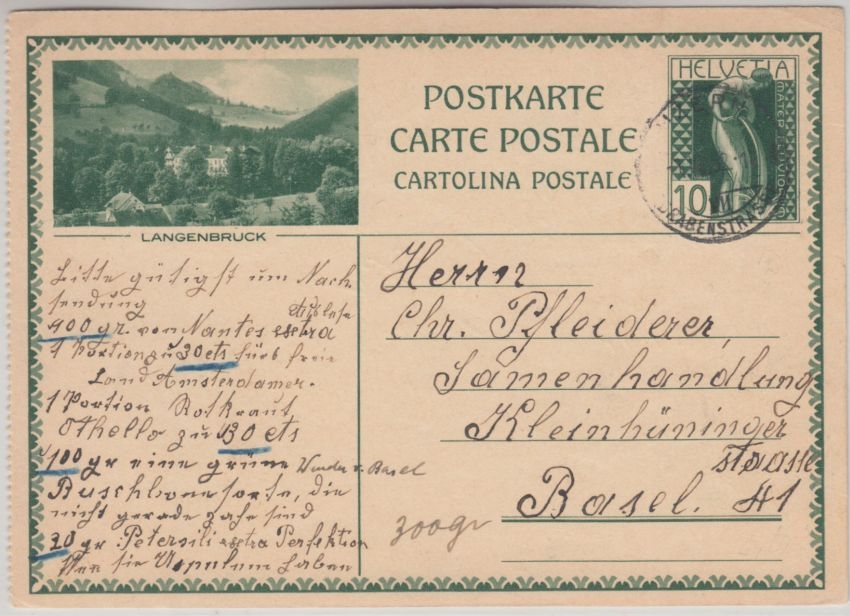 POSTKARTE
CARTE POSTALE
CARTOLINA POSTALE
HELVETIA
10
LANGENBRUCK
Bitte gütigst um Nach
sendung
400 gr. von Nantes extra
Auslese
1 Portion zu 30 cts fürs freie
Land Amsterdamer.
1 Portion Rotkraut
Othello zu 30 cts
100 gr eine grüne Wunder v. Basel
Buschbonesorte, die
nicht gerade zähe sind
20 gr. Petersili extra Perfektion
Wen sie Uspulum haben
200gr
Herrn
Chr. Pfleiderer,
Samenhandlung
Kleinhüninger
strasse
Basel. 41